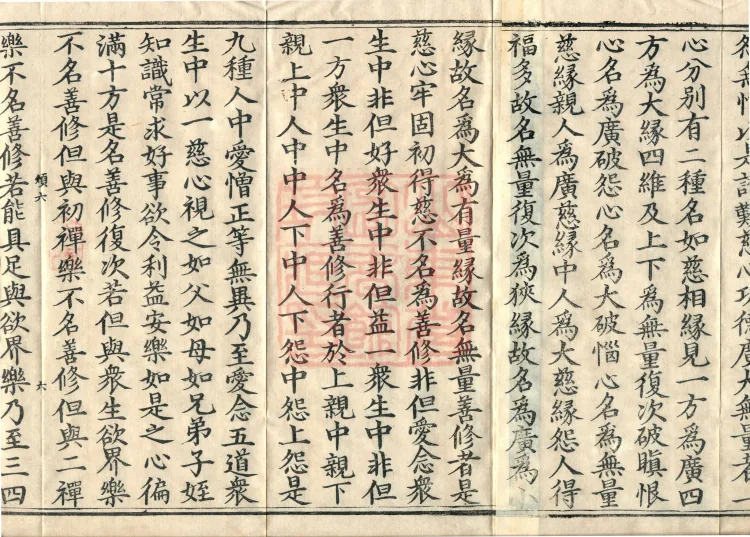 心分別有二種名如慈相緣見一方爲廣四
方爲大緣四維及上下爲無量復次破瞋恨
心名爲廣破怨心名爲大破惱心名爲無量
慈緣親人爲廣慈緣中人爲大慈緣怨人得
福多故名無量復次爲狹緣故名爲廣爲小
緣故名爲大爲有量緣故名無量善修者是
慈心牢固初得慈不名爲善修非但愛念衆
生中非但好衆生中非但益一衆生中非但
一方衆生中名爲善修行者於上親中親下
親上中人中中人下中人下怨中怨上怨是
九種人中愛憎正等無異乃至愛念五道衆
生中以一慈心視之如父如母如兄弟子姪
知識常求好事欲令利益安樂如是之心徧
滿十方是名善修復次若但與衆生欲界樂
不名善修但與初禪樂不名善修但與二禪
傾六 六
樂不名善修若能具足與欲界樂乃至三四